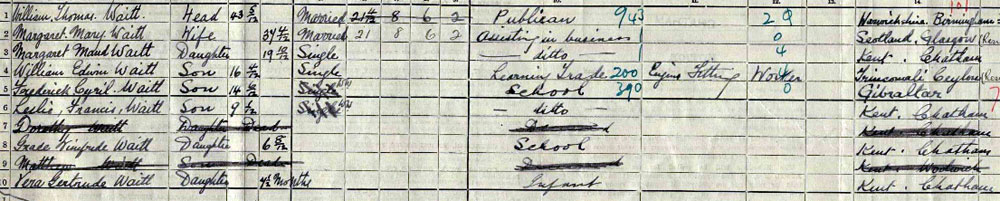 1 William, Thomas. Waitt. Head 43 5/12 Married 21 4/12 8 6 2 Publican 943 2 0 Warwickshire. Birmingham
2 Margaret. Mary. Waitt Wife 37 Married 21 8 6 2 Assisting in business 1 0 Scotland, Glasgow
3 Margaret Maud Waitt Daughter 19 Single — ditto — 4 Kent. Chatham
4 William Edwin Waitt Son 16 4/12 Single Learning Trade 200 Engine Fitting Worker Trincomali Ceylon
5 Frederick Cyril. Waitt Son 14 Single School 390 0 Gibraltar
6 Leslie, Francis, Waitt Son 9 Single — ditto — Kent. Chatham
7 Dorothy Waitt Daughter Dead Deceased Kent. Chatham
8 Grace Winifrede Waitt Daughter 6 School Kent. Chatham
9 Matthew Waitt Son Dead Deceased Kent. Woolwich
0 Vera Gertrude Waitt Daughter 4½ Months Infant Kent. Chatham